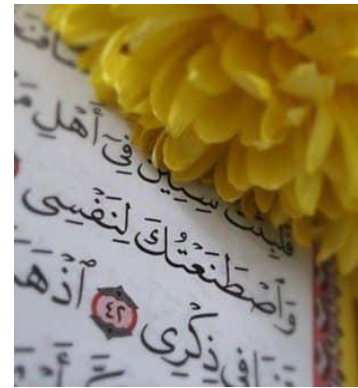 فَلَبِثْتَ سِنِينَ فِىٓ أَهْلِ مَ
وَٱصْطَنَعْتُكَ لِنَفْسِى
فِى ذِكْرِى ٤٢ ٱذْهَبَ